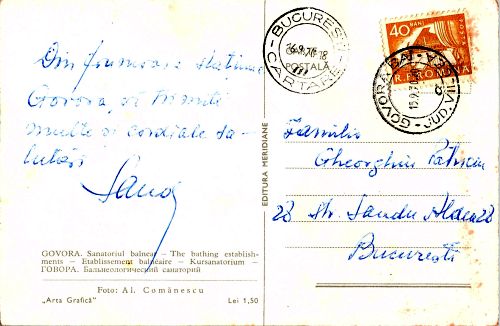 Din frumoasa stațiune
Govora, vă trimit
multe și cordiale sa-
lutări
GOVORA. Sanatoriul balnear — The bathing establish-
ments — Etablissement balnéaire — Kursanatorium —
ГОВОРА. Бальнеологический санаторий
Foto: Al. Comănescu
„Arta Grafică”
Lei 1,50
EDITURA MERIDIANE
BUCUREȘTI
CARTARE
POȘTALĂ
40 BANI
R.P. ROMINA
GOVORA BĂI
JUD. VÎLCEA
Familia
Gheorghiu
28 Str. Sandu Aldea 28
București